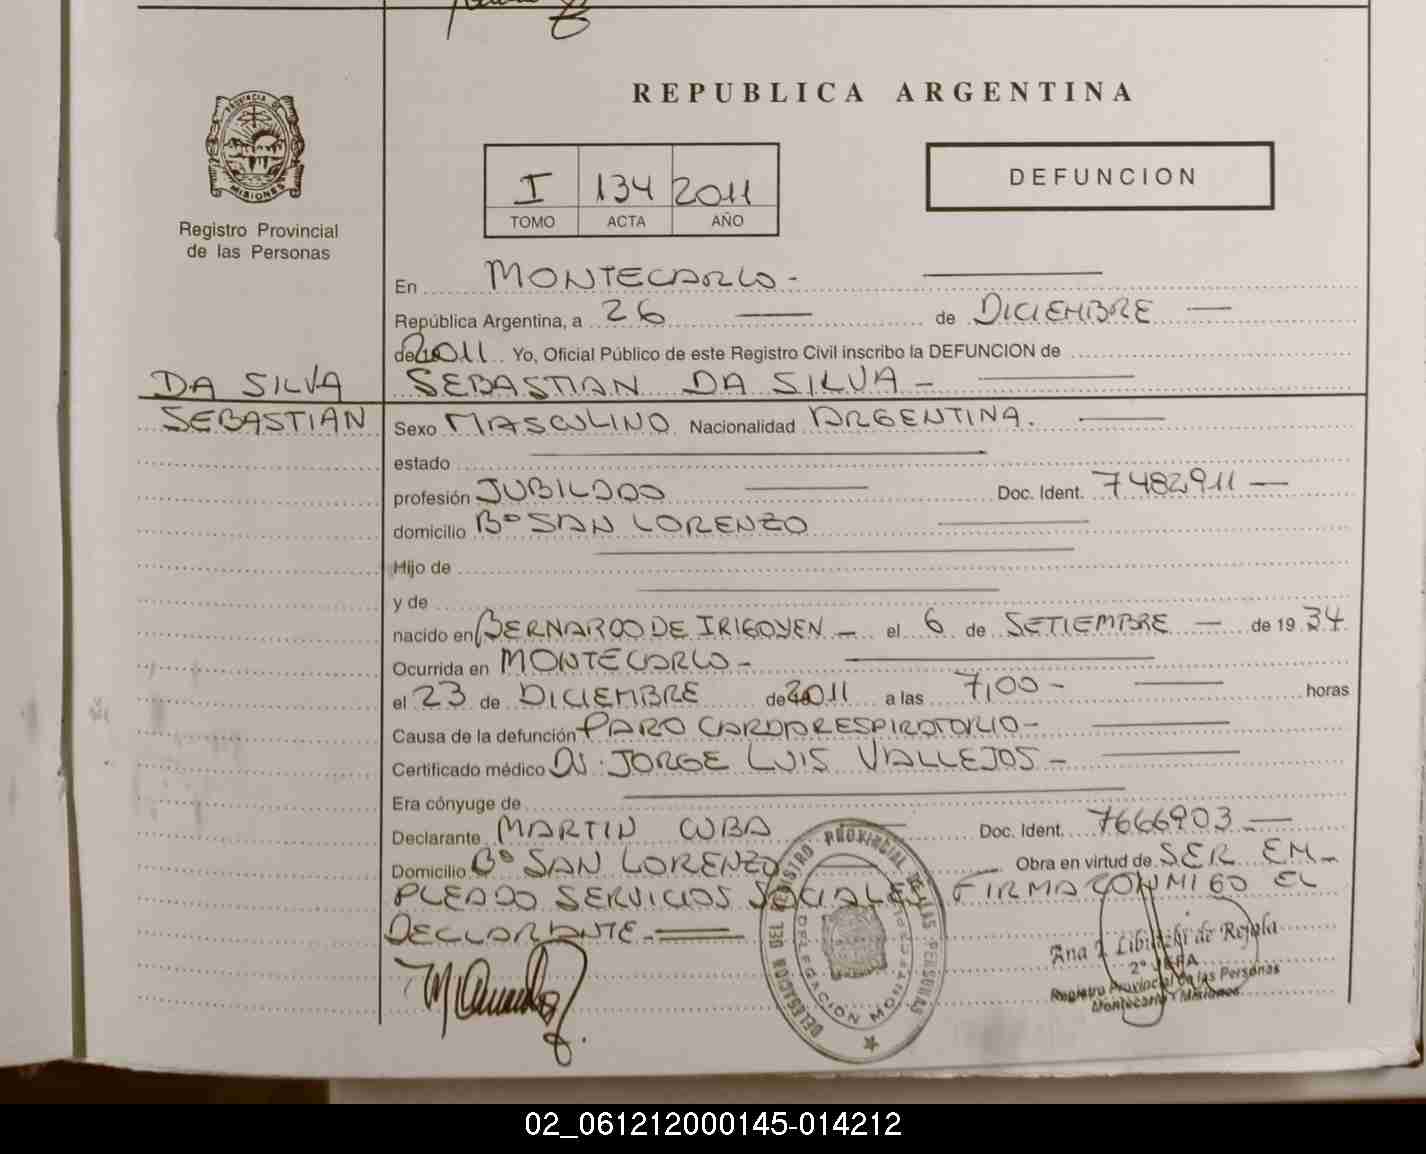 REPUBLICA ARGENTINA
PROVINCIA DE
MISIONES
Registro Provincial
de las Personas
I 134 2011
TOMO ACTA AÑO
DEFUNCION
En MONTECARLO -
República Argentina, a 26 de DICIEMBRE
de 2011 Yo, Oficial Público de este Registro Civil inscribo la DEFUNCION de
DA SILVA SEBASTIAN DA SILVA -
SEBASTIAN Sexo MASCULINO Nacionalidad ARGENTINA.
estado
profesión JUBILADO Doc. Ident. 7482911
domicilio Bº SAN LORENZO
Hijo de
y de
nacido en BERNARDO DE IRIGOYEN - el 6 de SETIEMBRE - de 19 34
Ocurrida en MONTECARLO -
el 23 de DICIEMBRE de 2011 a las 7,00 - horas
Causa de la defunción PARO CARDIORESPIROTORIO -
Certificado médico Dr. JORGE LUIS VALLEJOS -
Era cónyuge de
Declarante MARTIN CUBA Doc. Ident. 7666903
Domicilio Bº SAN LORENZO Obra en virtud de SER EM-
PLEADO SERVICIOS SOCIALES FIRMA CONMIGO EL
DECLARANTE.
DELEGACION DEL REGISTRO PROVINCIAL DE LAS PERSONAS
DELEGACION
Ana
2º JEFA
Registro Provincial de las Personas
Montecarlo Misiones
02_061212000145-014212